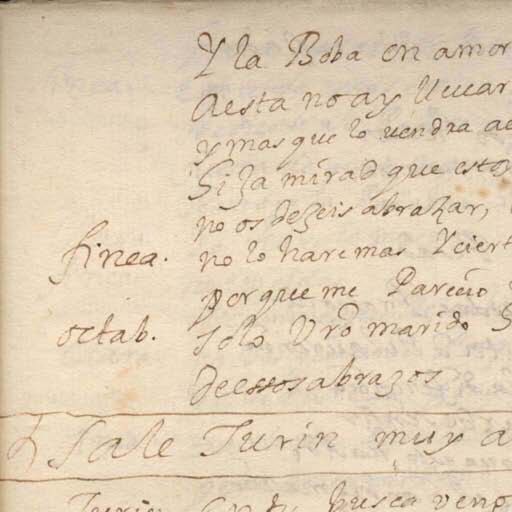 Y la Boba en amor
a esta no ay lleuar
y mas que lo vendra a
Si ya mirad que esto
no os dexeis abrazar,
finea. no lo hare mas Y ciert
porque me Parecio
octab. solo Vro marido S
de essos abrazos
Sale Turin muy a
Turin busca ven